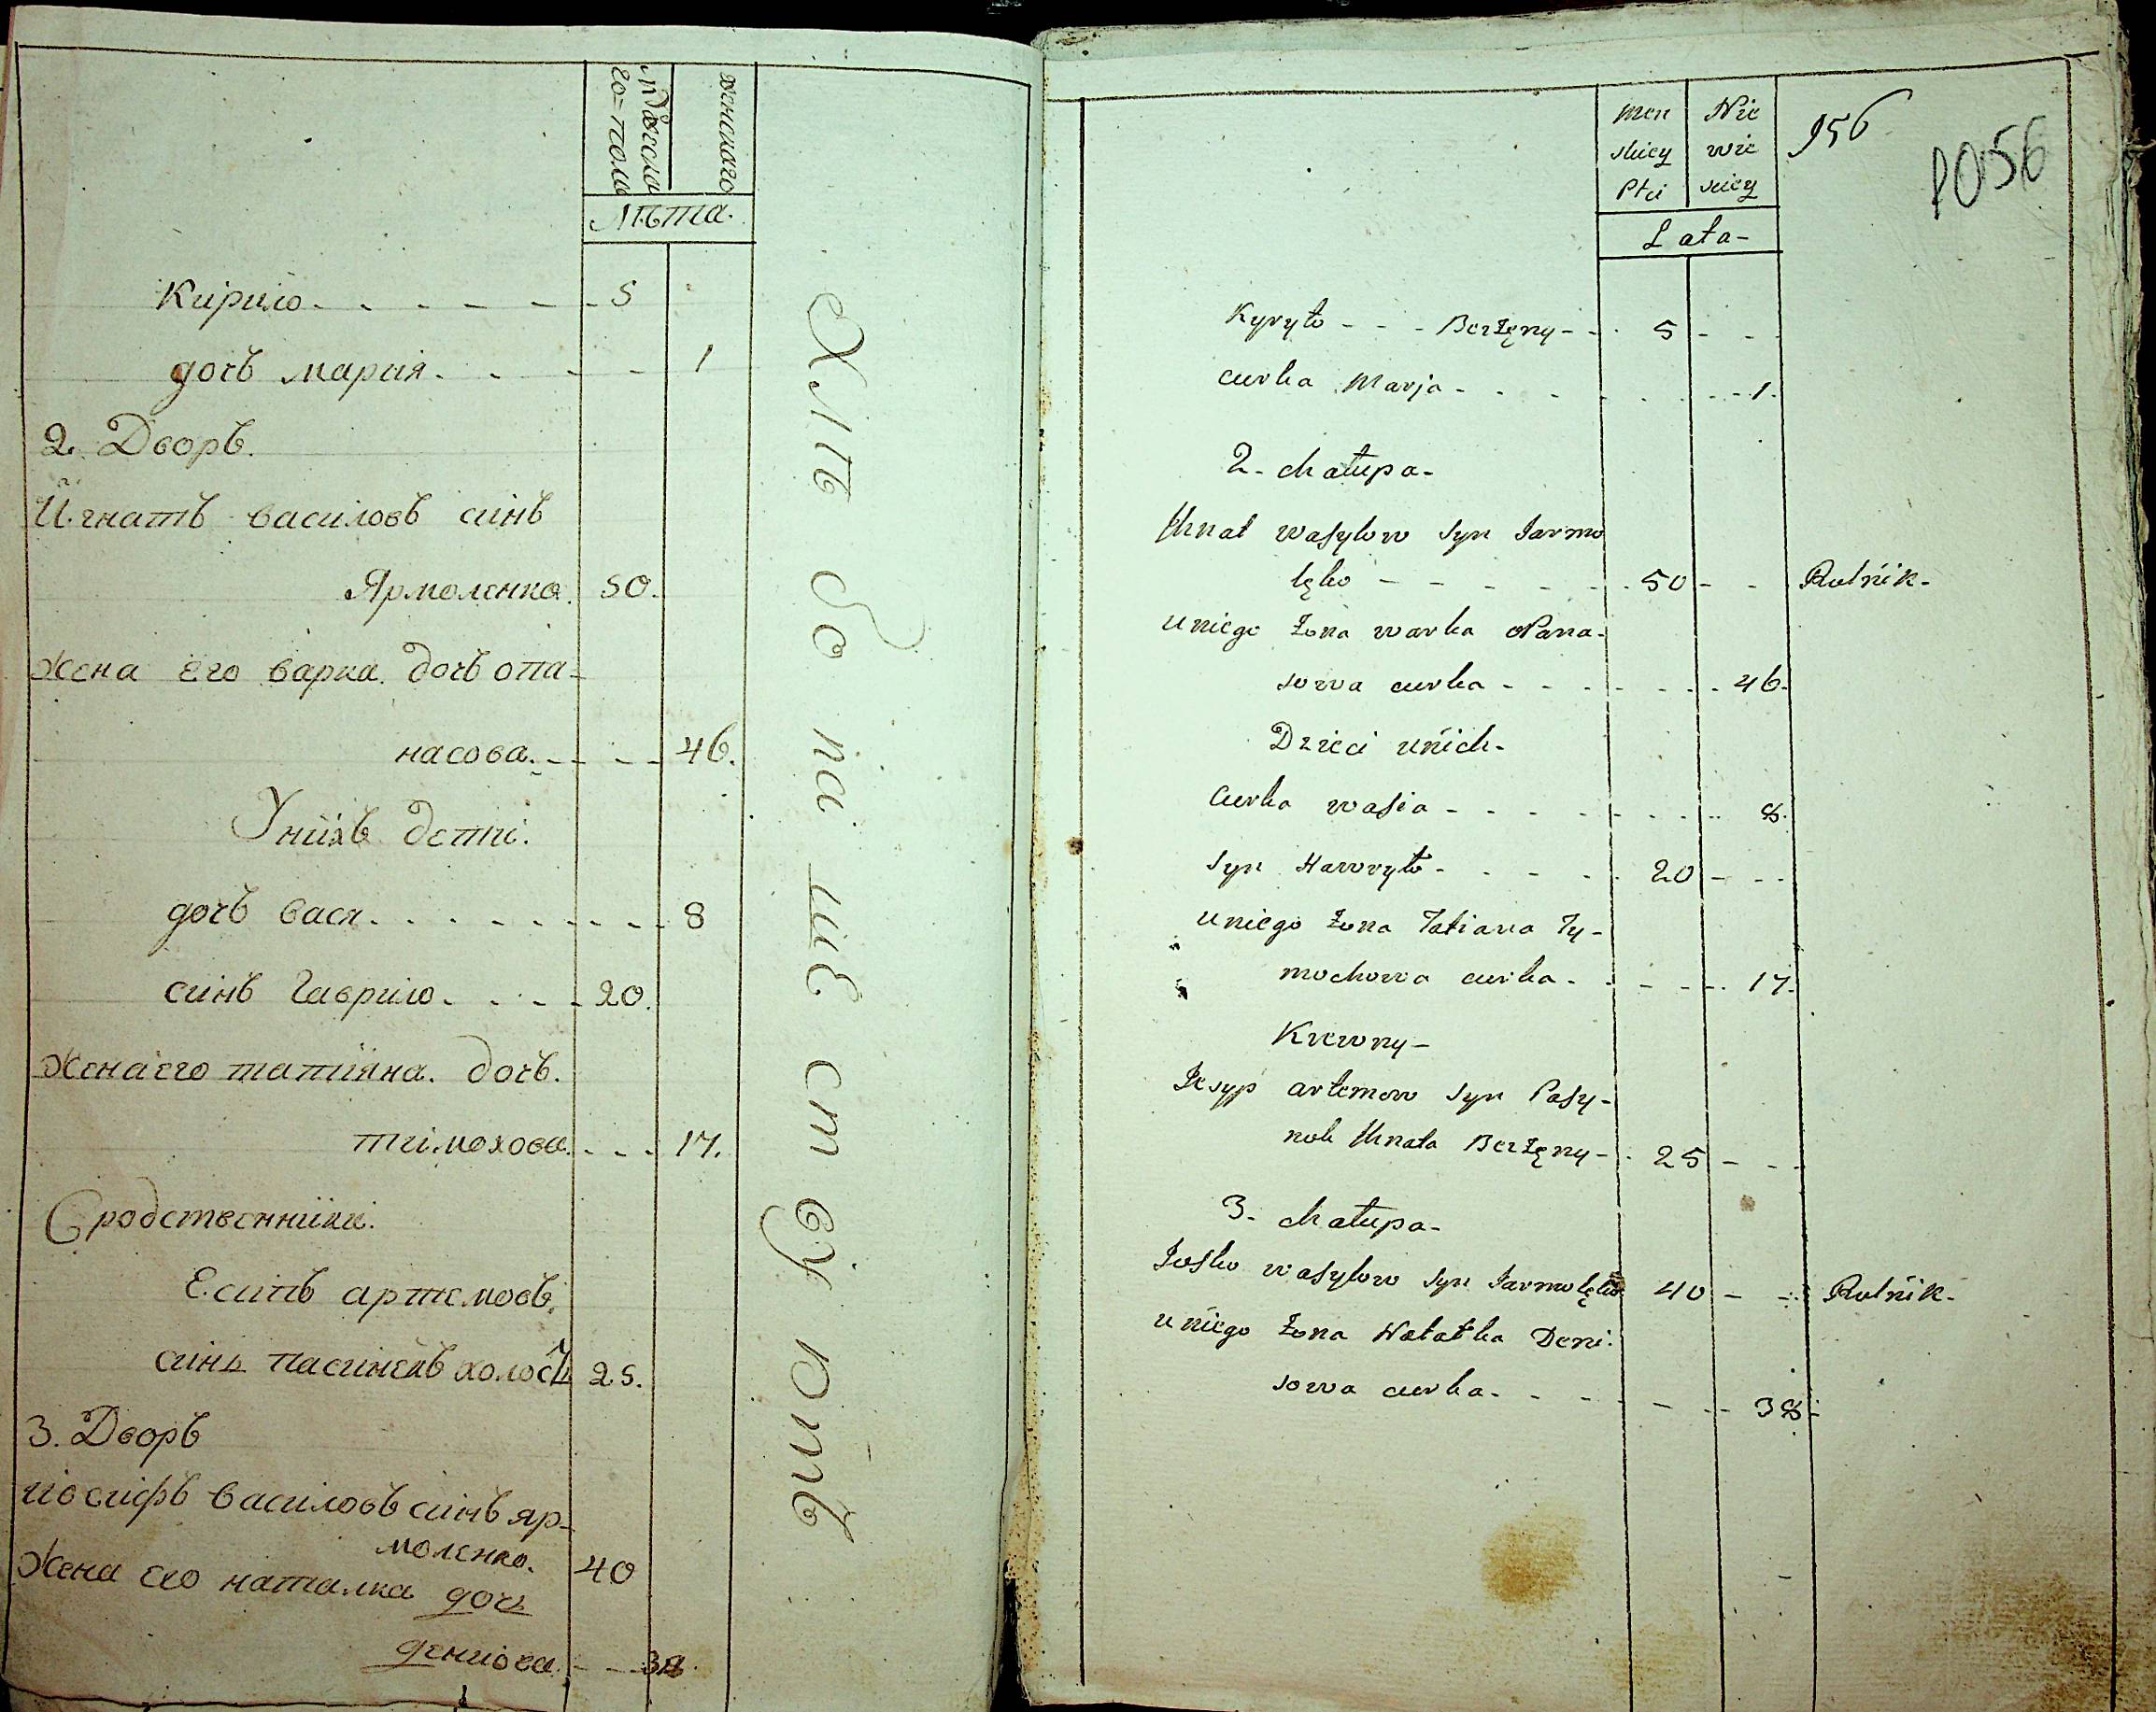 мужеска
го=пола
женскаго
Лѣта.
Кирило - - - - - - 5
дочъ мария - - - - 1
2. Дворъ.
Игнатъ василовъ синъ
Ярмоленко. 50.
жена его варка дочъ опа-
насова. - - - 46.
У нихъ дети.
дочъ вася - - - - - - - 8
синъ гаврило - - - - 20.
жена его татияна. дочъ.
тимохова. - - - 17.
Сродственники.
Есипъ артемовъ
синъ пасинокъ холос 25.
3. Дворъ
иосифъ василовъ синъ яр-
моленко. 40
жена его наталка дочъ
дениова - - 38
хлѣбопашествуютъ
men
skiey
Płci
Nie
wie
sciey
956
1056
Lata-
Kyryło - - - Berżęny - - 5 - - -
curka Marja - - - - - - 1.
2- chałupa-
Ihnat wasylow syn Jarmo
lęko - - - - - 50 - - Rolnik-
u niego żona warka oPana-
sowa curka - - - - - 46.
Dzieci u nich-
curka wasia - - - - - - 8.
syn Hawryło - - - - 20 - - -
u niego żona Tatiana Ty-
mochowa curka - - - - - 17.
Krewny-
Josyp artemow syn Pasy-
nok Ihnata Berżęny - - 25 - - -
3- chałupa-
Josko wasylow syn Jarmolęko 40 - - Rolnik-
u niego żona Natałka Deni-
sowa curka - - - - - - 38-